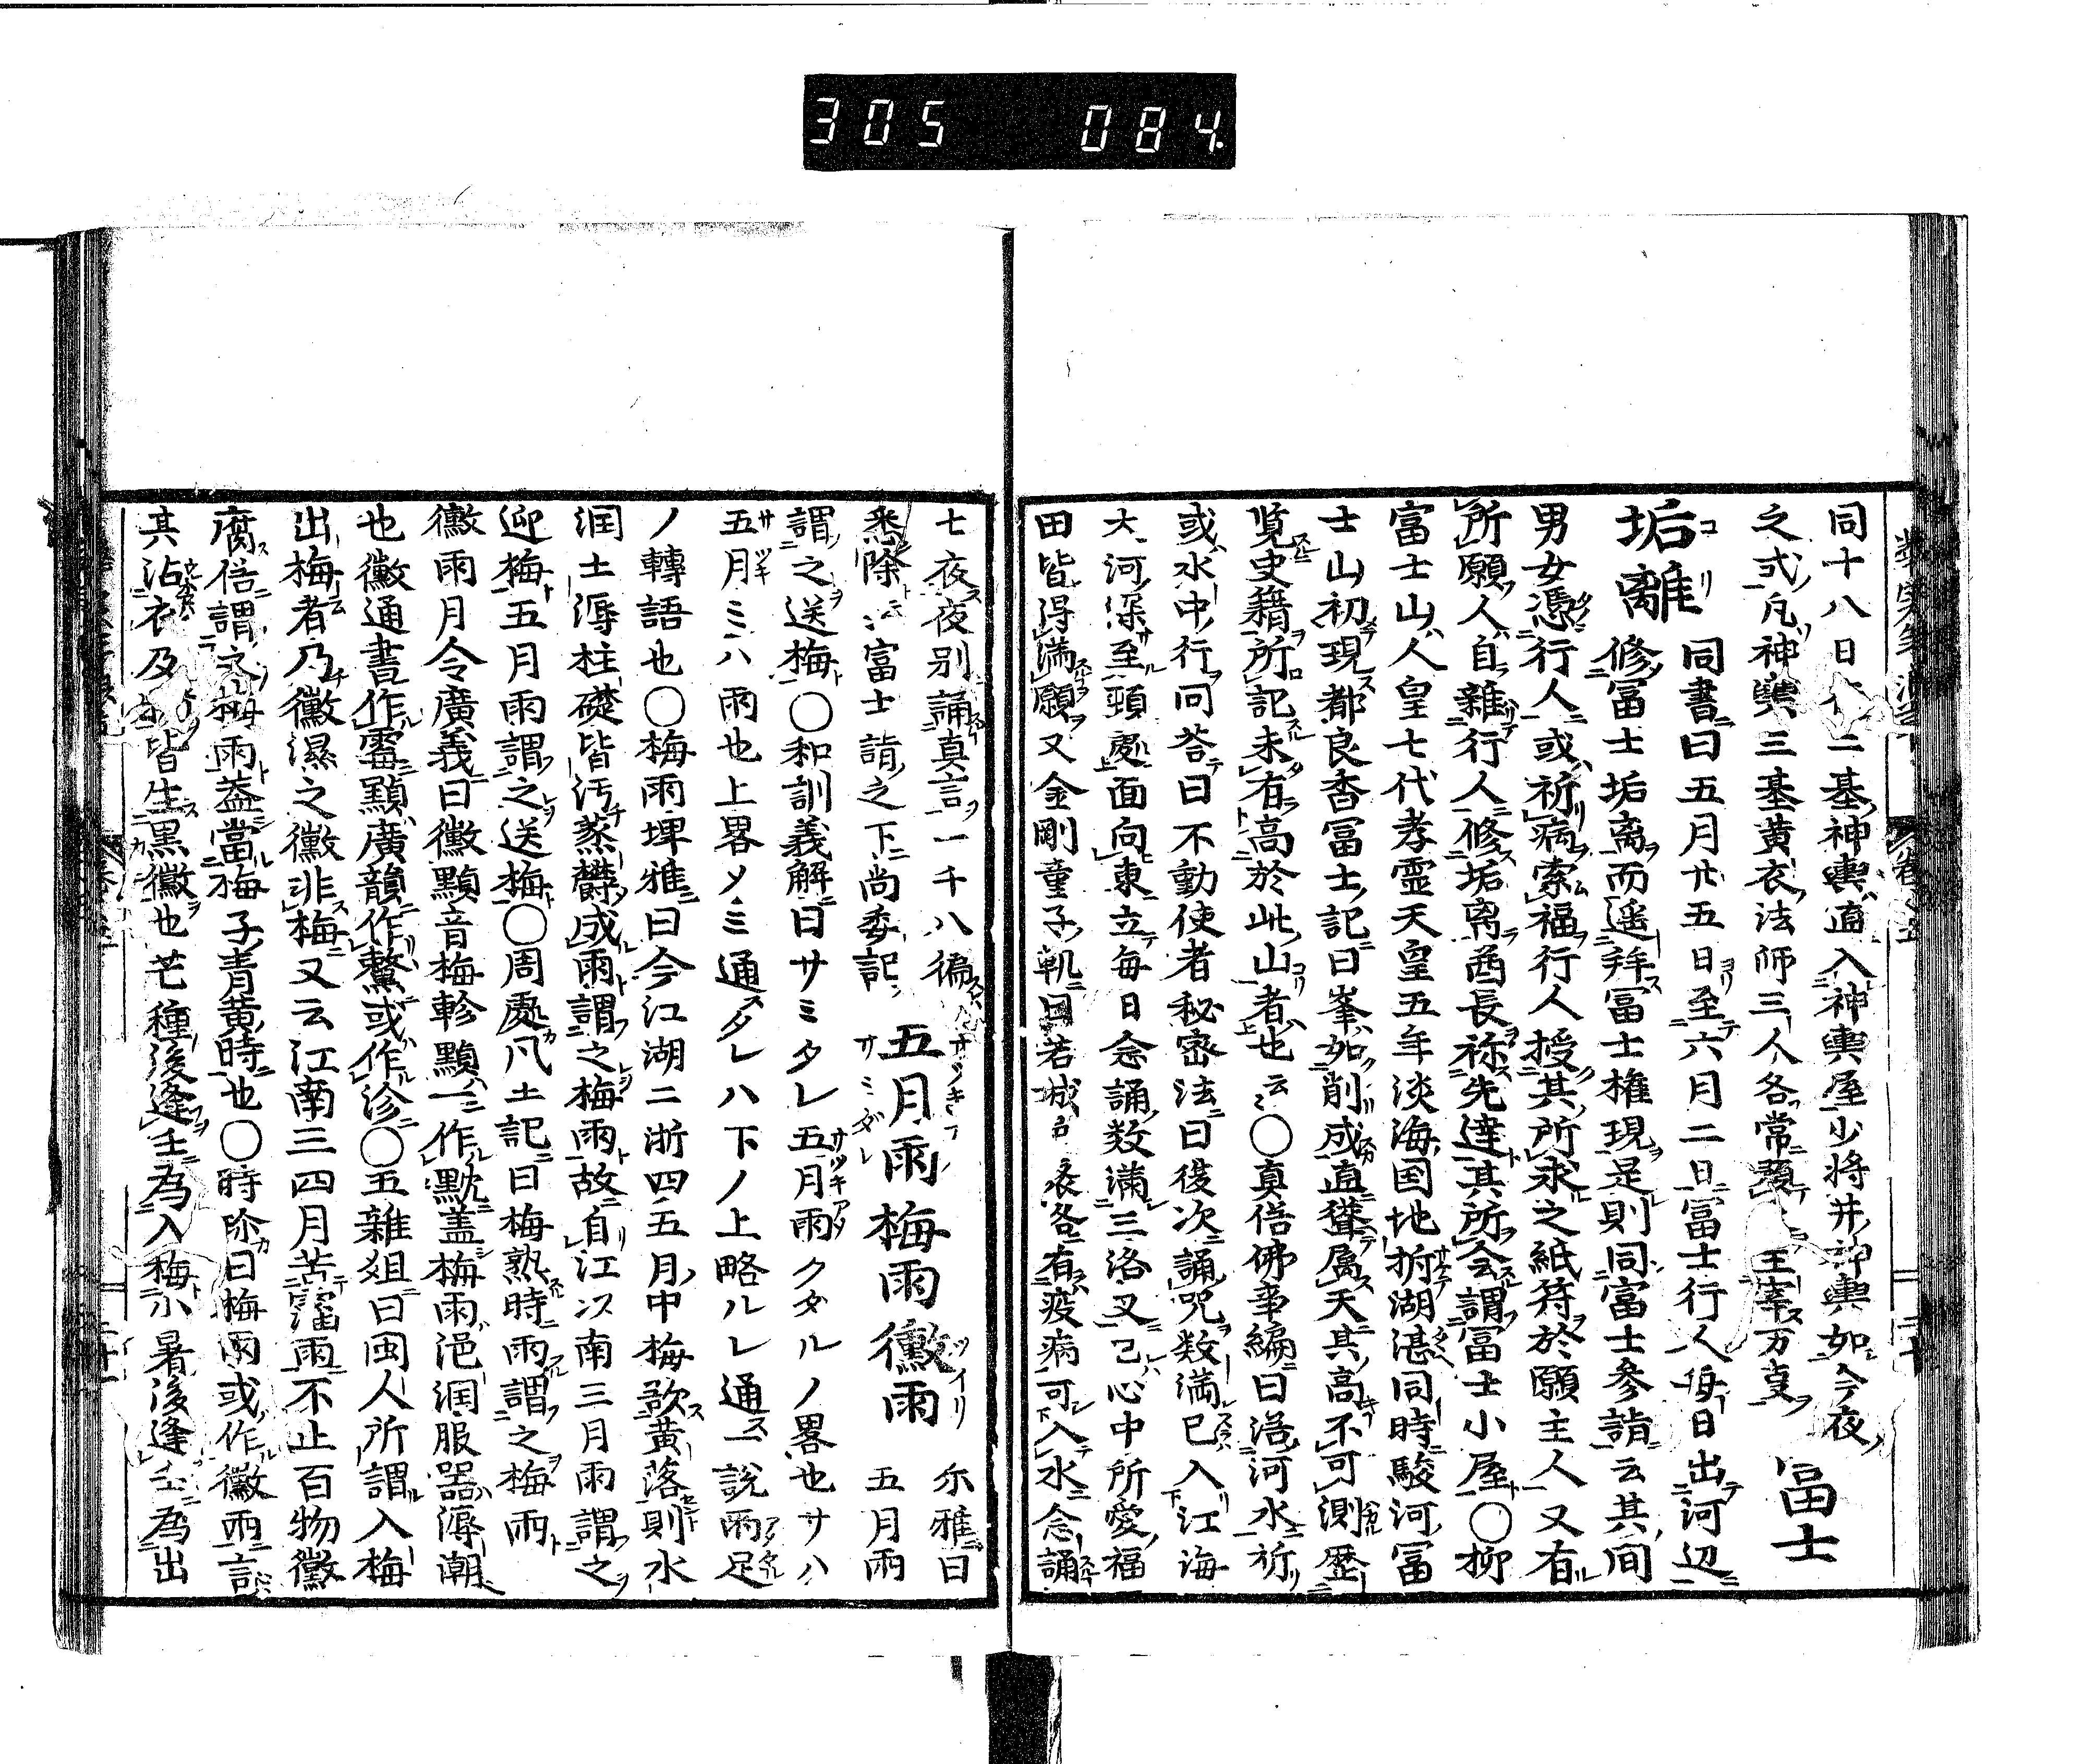 305 084
同十八日二基神輿直入神輿屋少将井神輿如今夜
之式凡神輿三基黄衣法師三人各常頸主宰万吏
富士
垢離
同書曰五月廿五日至六月二日富士行人毎日出河辺
修富士垢离而遥拜冨士権現是則同富士参詣云其間
男女憑行人或祈病索福行人授其所求之紙符於願主人又有
所願人自雜行人修垢离酋長祢先達其所会謂冨士小屋○抑
富士山人皇七代孝霊天皇五年淡海国地拆湖湛同時駿河冨
士山初現都良香冨士記曰峯如削成直聳属天其高不可測歴
覧史籍所記未有高於此山者也云〻○真俗佛事編曰洛河水祈
或水中行同荅曰不動使者秘密法曰復次誦咒数満已入江海
大河深至頸處面向東立毎日念誦数満三洛叉已心中所愛福
田皆得満願又金剛童子軌曰若城各有疫病可入水念誦
七夜夜别誦真言一千八徧
悉除云〻富士詣之下尚委記
五月雨梅雨黴雨
尓雅曰
五月雨
謂之送梅○和訓義解曰サミタレ五月雨クダルノ畧也サハ
五月ミハ雨也上畧ノミ通タレハ下ノ上略ルレ通一説雨足
ノ轉語也○梅雨埤雅曰今江湖二浙四五月中梅欲黄落則水
润土溽柱礎皆汚蒸欝成雨謂之梅雨故自江以南三月雨謂之
迎梅五月雨謂之送梅○周處風土記曰梅熟時雨謂之梅雨
黴雨月令廣義曰黴黰音梅軫黰一作黕盖梅雨浥润服器溽潮
也黴通書作霉黰廣韻作黳或作沴○五雜俎曰閩人所謂入梅
出梅者乃黴濕之黴非梅又云江南三四月苦霪雨不止百物黴
腐俗謂之梅雨葢當梅子青黄時也○時珎曰梅雨或作黴雨言
其沾衣及皆生黒黴也芒種後逢壬為入梅小暑後逢壬為出